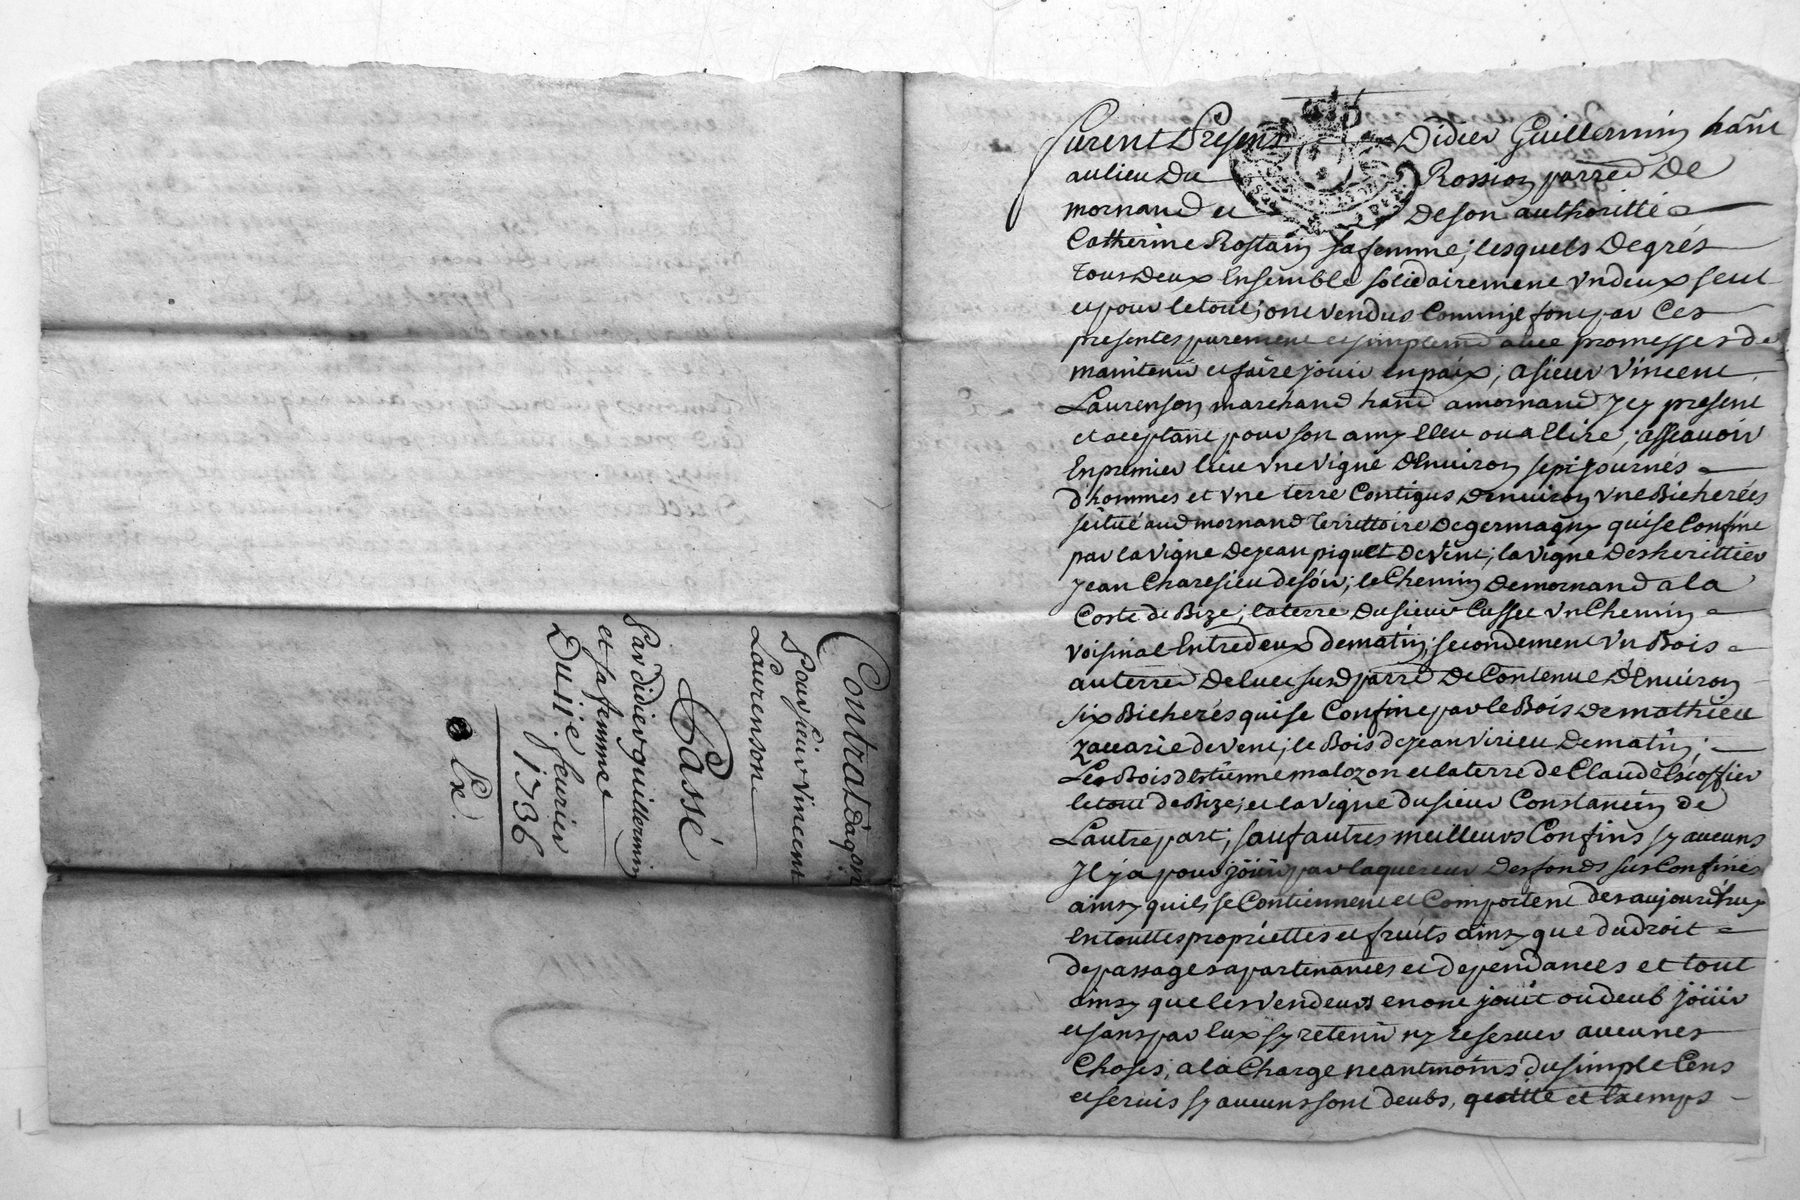 Contrat daqon
Pour sieur Vincent
Laurenson
Passé
Par didier guillermin
et sa femme
Du iie feurier
1736
Px
furent Presens Didier Guillermin hant
au lieu Du Rossion parred De
mornand et De son authoritté
Catherine Rostain sa femme; lesquels De grés
Tous Deux Ensemble solidairement Vn deux seul
et pour le tout; ont vendus Comme font par Ces
presentes purement et simplemt avec promesses de
maintenir et faire jouir en paix; a sieur Vincent
Laurenson marchand hant a mornand Jcy present
et aceptant pour son amy Eleu ou a Elire; asscauoir
En premier lieu Vne Vigne D'Enuiron sept journés
d'hommes et Vne terre Contigus D'enuiron Vne Bicherées
scitué aud mornand Territtoire De germagny qui se Confine
par la Vigne De jean piquet De Vent; la Vigne Desherittier
Jean Charesieu de soir; le Chemin De mornand a la
Coste de Bize; la terre Du sieur Cussec Vn Chemin
Voisinal Entredeux de matin; secondement Vn Bois
au terred De luce susd parre De Contenue D'Enuiron
six Bicherés qui se Confine par le Bois De mathieu
Zacarie de Vent; le Bois de jean Virieu De matin;
Les Bois d'Estienne malozon et la terre de Claude Escoffier
le tout de Bize; et la Vigne du sieur Constancin de
L'autre part; sauf autres meilleurs Confins sy aucuns
Jl y a pour joüir par l'aquereur Des fonds sus Confinés
ainsy qu'ils se Contiennent et Comportent Des aujourd'huy
En touttes propriettés et fruits ainsy que du droit
de passages apartenances et dependances et tout
ainsy que les Vendeurs en ont jouit ou deub joüir
et sans par Eux sy retenir ny reseruer aucunes
Choses; a la Charge neantmoins du simple Cens
et seruis sy aucuns sont deubs, quitte et Exemps